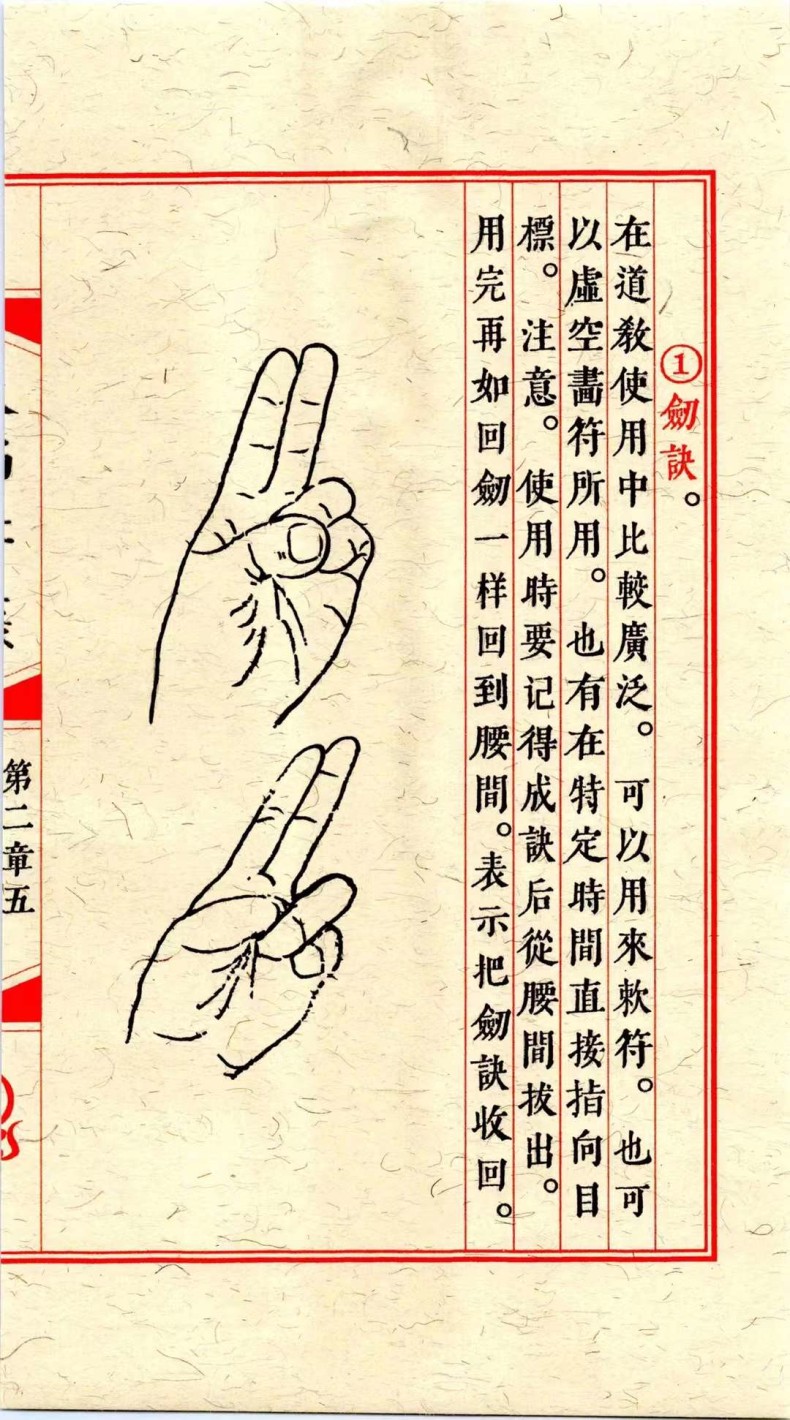 ①劒訣。
在道教使用中比較廣泛。可以用來敕符。也可
以虛空畵符所用。也有在特定時間直接指向目
標。注意。使用時要记得成訣后從腰間拔出。
用完再如回劒一样回到腰間。表示把劒訣收回。
第二章五